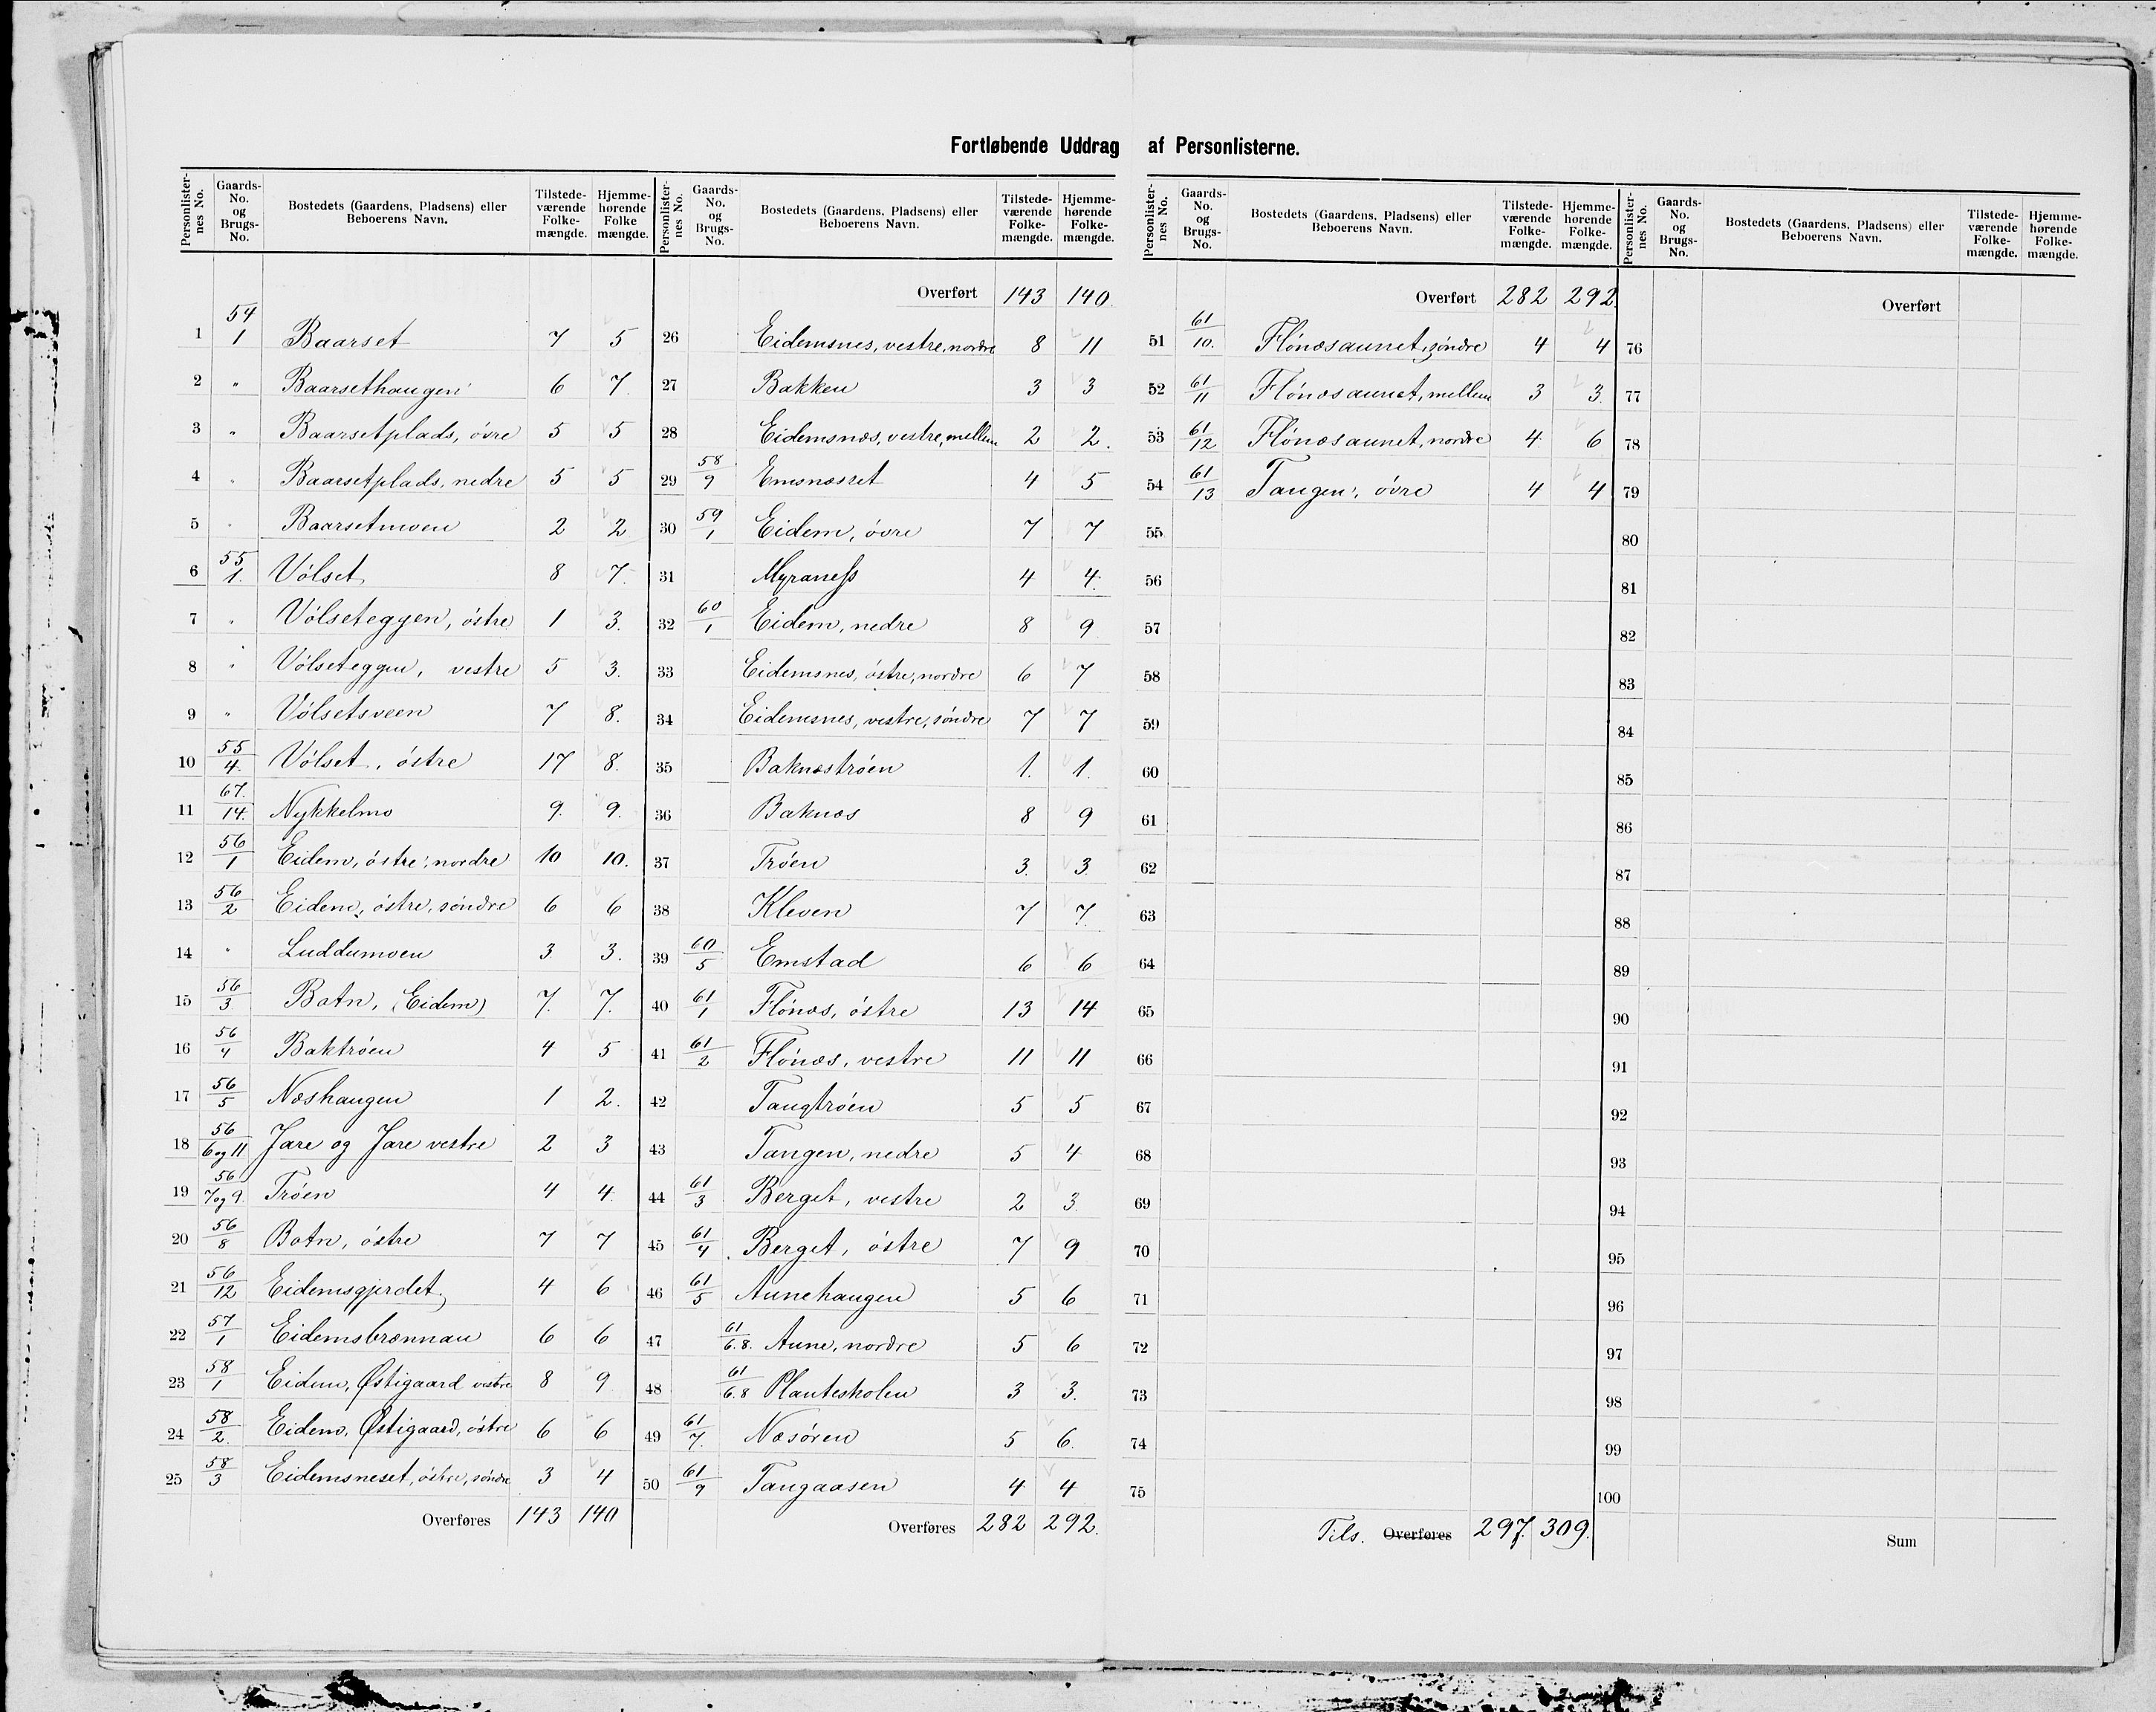 Fortløbende Uddrag af Personlisterne.
Personlister-nes No. Gaards-No. og Brugs-No. Bostedets (Gaardens, Pladsens) eller Beboerens Navn. Tilstede-værende Folke-mængde. Hjemme-hørende Folke mængde.
1 54/1 Baarset 7 5
2 " Baarsethaugen 6 7
3 " Baarsetplads, övre 5 5
4 " Baarsetplads, nedre 5 5
5 " Baarsetmoen 2 2
6 55/1. Völset 8 7.
7 " Völseteggen, östre 1 3.
8 " Völseteggen, vestre 5 3.
9 " Völsetsveen 7 8.
10 55/4. Völset, östre 17 8.
11 67./14. Nykkelmo 9. 9.
12 56/1 Eidem, östre, nordre 10 10.
13 56/2 Eidem, östre, söndre 6 6
14 " Luddumoen 3 3.
15 56/3 Botn, (Eidem) 7. 7.
16 56/4 Baktröen 4 5
17 56/5 Næshaugen 1 2.
18 56/6 og 11 Jare og Jare vestre 2 3
19 56/7 og 9. Tröen 4 4.
20 56/8 Botn, östre 7 7
21 56/12 Eidemsgjerdet 4 6
22 57/1 Eidemsbrænnan 6 6
23 58/1 Eidem, Østigaard vestre 8 9
24 58/2. Eidem, Østigaard, östre 6 6
25 58/3 Eidemsneset, östre, söndre 3 4
Overføres 143 140
Personlister-nes No. Gaards-No. og Brugs-No. Bostedets (Gaardens, Pladsens) eller Beboerens Navn. Tilstede-værende Folke-mængde. Hjemme-hørende Folke-mængde.
Overført 143 140.
26 Eidemsnes, vestre, nordre 8 11
27 Bakken 3 3
28 Eidemsnæs, vestre, mellem 2 2.
29 58/9 Emsnæsset 4 5
30 59/1 Eidem, övre 7 7
31 Myraness 4 4.
32 60/1 Eidem, nedre 8 9
33 Eidemsnes, östre, nordre 6 7
34 Eidemsnes, vestre, söndre 7 7
35 Baknæströen 1. 1.
36 Baknæs 8 9
37 Tröen 3. 3.
38 Kleven 7 7.
39 60/5 Emstad 6 6
40 61/1 Flönæs, östre 13 14
41 61/2 Flönæs, vestre 11 11
42 Tangtröen 5 5
43 Tangen, nedre 5 4
44 61/3 Berget, vestre 2 3.
45 61/4 Berget, östre 7 9
46 61/5 Aunehaugen 5 6
47 61/6.8. Aune, nordre 5 6
48 61/6.8 Planteskolen 3 3.
49 61/7. Næsören 5 6.
50 61/9 Tangaasen 4 4
Overføres 282 292.
Personlister-nes No. Gaards-No. og Brugs-No. Bostedets (Gaardens, Pladsens) eller Beboerens Navn. Tilstede-værende Folke-mængde. Hjemme-hørende Folke-mængde.
Overført 282 292.
51 61/10. Flönæsaunet, söndre 4 4
52 61/11 Flönæsaunet, mellem 3 3.
53 61/12 Flönæsaunet, nordre 4. 6
54 61/13 Tangen, övre 4 4
55
56
57
58
59
60
61
62
63
64
65
66
67
68
69
70
71
72
73
74
75
Tils. Overføres 297. 309.
Personlister-nes No. Gaards-No. og Brugs-No. Bostedets (Gaardens, Pladsens) eller Beboerens Navn. Tilstede-værende Folke-mængde. Hjemme-hørende Folke-mængde.
Overført
76
77
78
79
80
81
82
83
84
85
86
87
88
89
90
91
92
93
94
95
96
97
98
99
100
Sum